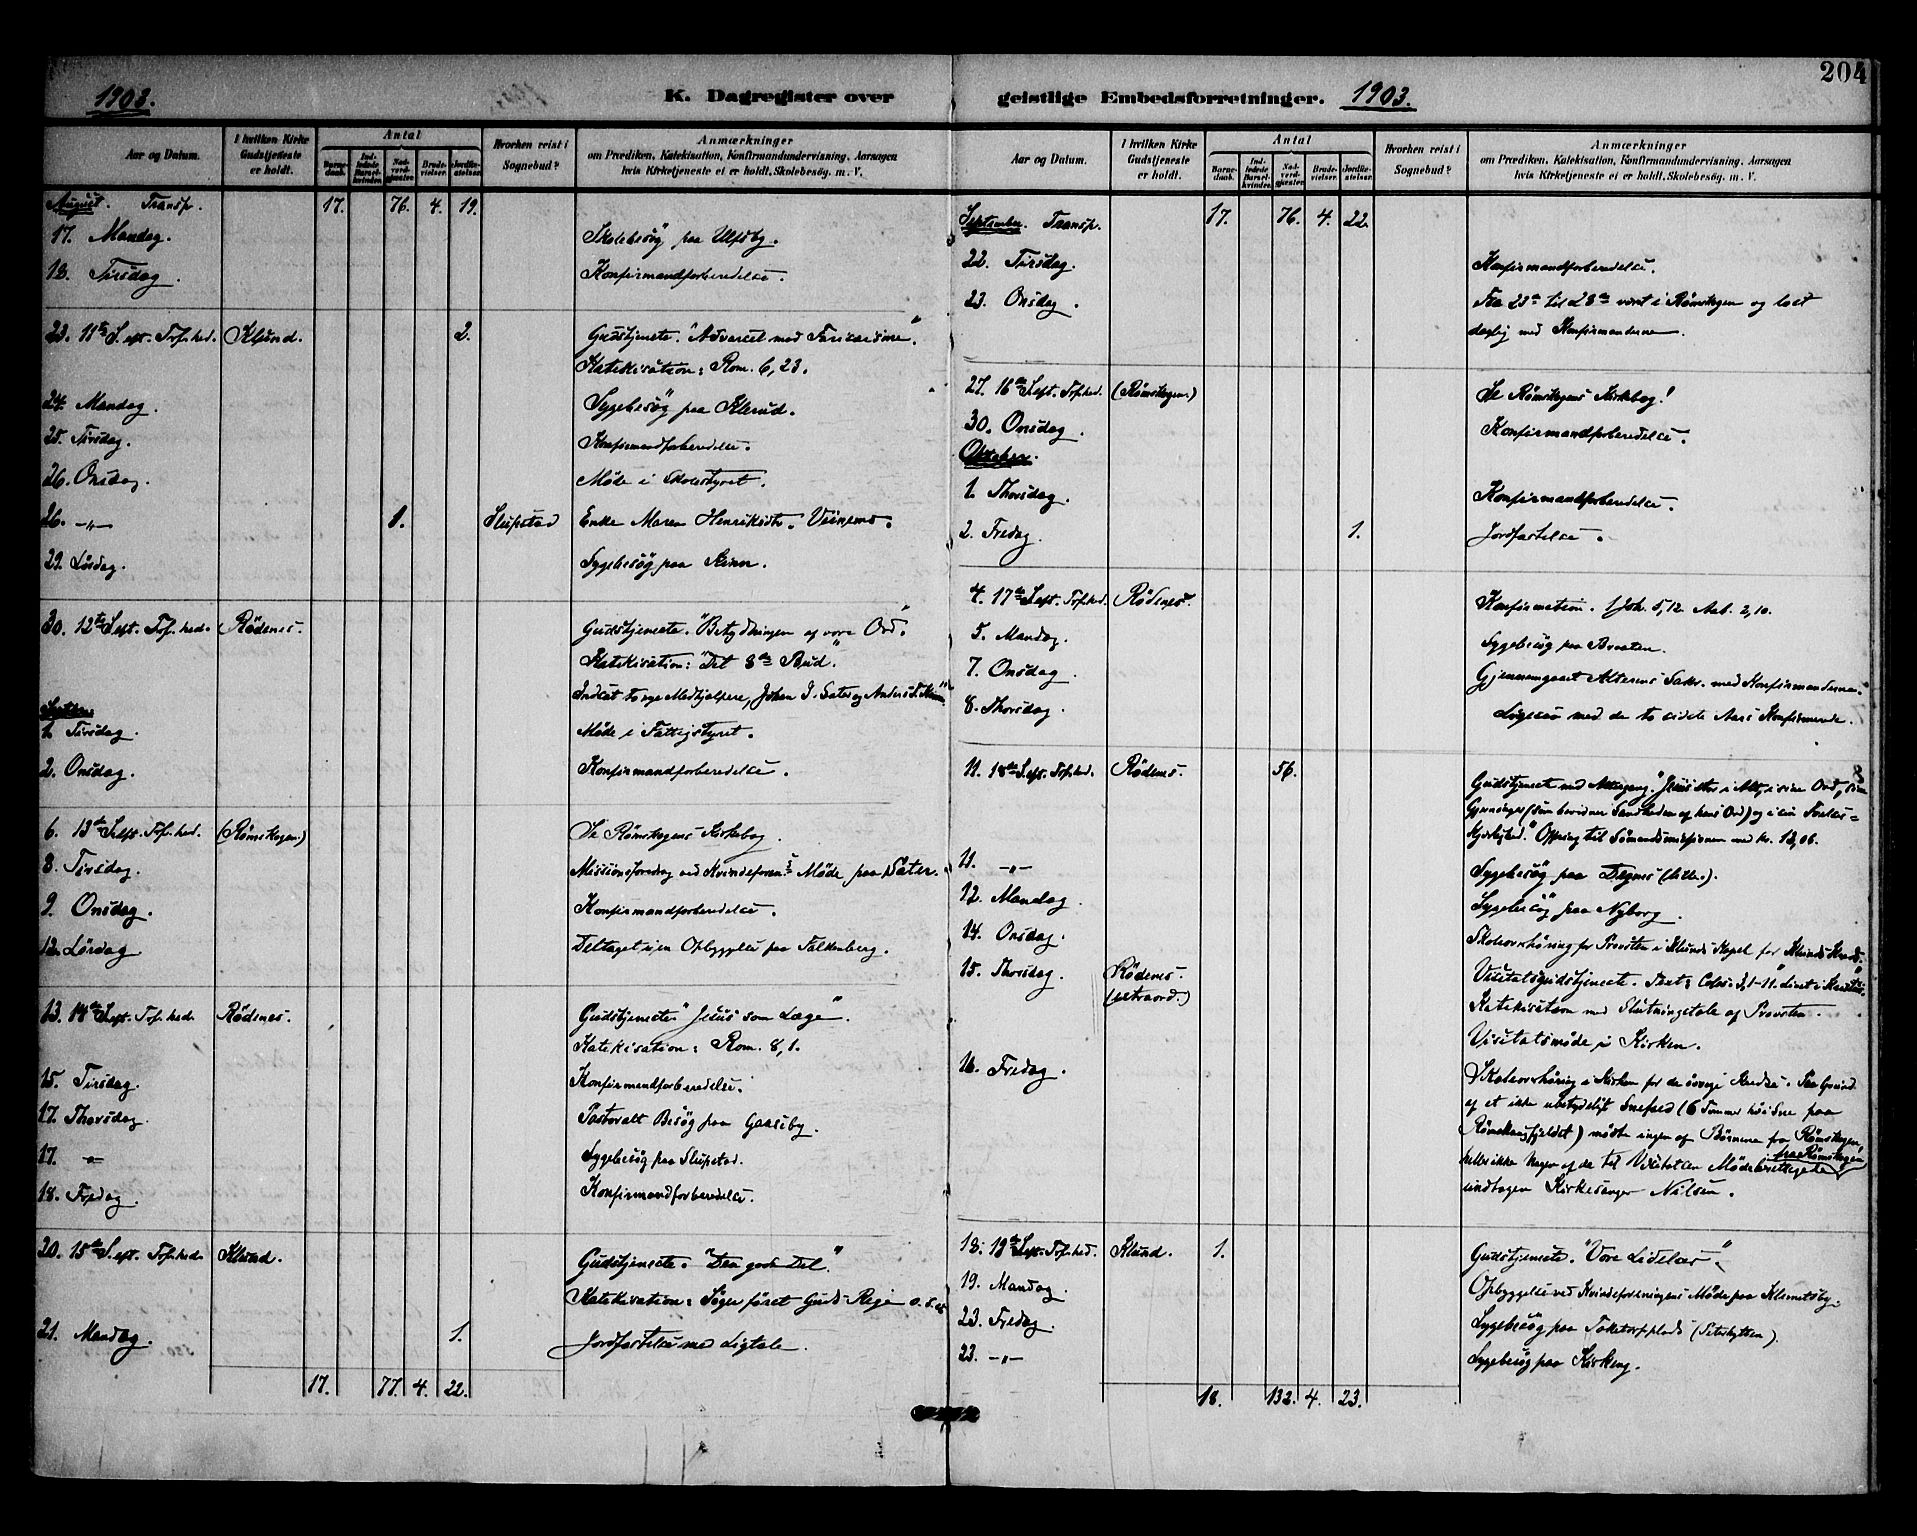 204
1903.
K. Dagregister over
Aar og Datum.
I hvilken Kirke Gudstjeneste er holdt.
Antal
Barnedaab.
Indledede Barselkvinder.
Nadverdgjæster.
Brudevielser.
Jordfæstelser.
Hvorhen reist i Sognebud?
Anmærkninger
om Prædiken, Katekisation, Konfirmandundervisning, Aarsagen
hvis Kirketjeneste ei er holdt, Skolebesøg. m. V.
August. Transp. 17. 76. 4. 19.
17. Mandag. Skolebesøg paa Ulfsby.
18. Tirsdag. Konfirmandforberedelse.
23. 11te S. eft. Tref.hed. Klund. 2. Gudstjeneste.
Katekisation: Rom. 6, 23.
24. Mandag. Sygebesøg paa Klerud.
25. Tirsdag. Konfirmandforberedelse.
26. Onsdag. Møde i Skolestyret.
26. -"- 1. Slupstad Enke Maren Henriksdtr.
29. Lørdag. Sygebesøg paa
30. 12te S. eft. Tref.hed. Rødenes. Gudstjeneste. "Betydningen af vore Ord."
Katekisation: "Det 8de Bud."
Indsat to nye Medhjælpere, Johan
Septbr.
1. Tirsdag. Møde i Fattigstyret.
2. Onsdag. Konfirmandforberedelse.
6. 13de S. eft. Tref.hed. (Rømskogen) Se Rømskogens Kirkebog.
8. Tirsdag. Missionsforedrag ved Kvindeforen.s Møde paa Sater.
9. Onsdag. Konfirmandforberedelse.
12. Lørdag Deltaget i en Opbyggelse paa Falkenberg.
13. 14de S. eft. Tref.hed. Rødenes. Gudstjeneste "Jesus som Læge".
Katekisation: Rom. 8, 1.
15. Tirsdag. Konfirmandforberedelse.
17. Thorsdag. Pastoralt Besøg paa Gaaseby.
17. -"- Sygebesøg paa Slupstad.
18. Fredag. Konfirmandforberedelse.
20. 15de S. eft. Tref.hed. Klund. Gudstjeneste. "Den gode Del".
Katekisation: Søger først Guds Rige o. s. v.
21. Mandag. 1. Jordfæstelse med Ligtale.
17. 77. 4. 22.
geistlige Embedsforretninger. 1903.
Aar og Datum.
I hvilken Kirke Gudstjeneste er holdt.
Antal
Barnedaab.
Indledede Barselkvinder.
Nadverdgjæster.
Brudevielser.
Jordfæstelser.
Hvorhen reist i Sognebud?
Anmærkninger
om Prædiken, Katekisation, Konfirmandundervisning, Aarsagen
hvis Kirketjeneste ei er holdt, Skolebesøg. m. V.
September. Transp. 17. 76. 4. 22.
22. Tirsdag. Konfirmandforberedelse.
23. Onsdag. Fra 23de til 28de været i Rømskogen og læst
daglig med Konfirmanderne.
27. 16de S. eft. Tref.hed. (Rømskogen.) Se Rømskogens Kirkebog!
30. Onsdag. Konfirmandforberedelse.
Oktober.
1. Thorsdag. Konfirmandforberedelse.
2. Fredag. 1. Jordfæstelse.
4. 17de S. eft. Tref.hed. Rødenes. Konfirmation. 1 Joh. 5, 12. Aab. 2, 10.
5. Mandag. Sygebesøg paa Braaten.
7. Onsdag. Gjennemgaaet Alterens Sakr. med Konfirmanderne.
8. Thorsdag. med de to sidste Aars Konfirmerede.
11. 18de S. eft. Tref.hed. Rødenes. 56. Gudstjeneste med Altergang. "Jesus stor i Alt, i sine Ord, sine
Gjerninger (som Sandheden af hans Ord) og i sin Frelser-
kjærlighed." Offring til Sømandsmissionen med kr. 13,06.
11. -"- Sygebesøg paa Degnes
12. Mandag. Sygebesøg paa Nyborg.
14. Onsdag. Skoleoverhøring for Provsten i Klunds Kapel for Klunds Kreds.
15. Thorsdag. Rødenes. (extraord.) Visitatsgudstjeneste. Text: Colos. 3, 1-11.
Katekisation med Slutningstale af Provsten.
Visitatsmøde i Kirken.
16. Fredag. Skoleoverhøring i Kirken for de øvrige Kredse. Paa Grund
af et ikke ubetydeligt Snefald (6 Tommer høi Sne paa
Rømskougfjeldet) mødte ingen af Børnene fra Rømskogen,
heller ikke Nogen af de til Visitatsen Mødeberettigede fra Rømskogen
undtagen Kirkesanger Nilsen.
18. 19de S. eft. Tref.hed. Klund. 1. Gudstjeneste. "Vore Lidelser".
19. Mandag. Opbyggelse ved Kvindeforeningens Møde paa Klemetsby.
23. Fredag. Sygebesøg paa
23. -"- Sygebesøg paa Kirkeng.
18. 132. 4. 23.